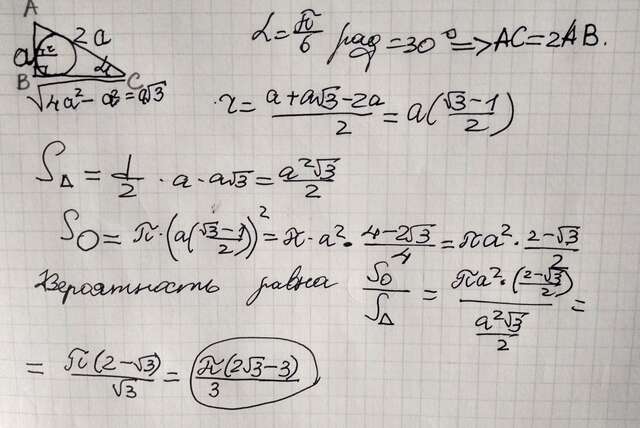 A
a
2a
r
α
B
C
√4a² − a² = a√3
α = π/6 рад = 30° => AC = 2AB.
r = (a + a√3 − 2a)/2 = a((√3 − 1)/2)
S△ = 1/2 · a · a√3 = a²√3/2
S○ = π · (a(√3 − 1)/2)² = π · a² · (4 − 2√3)/4 = πa² · (2 − √3)/2
Вероятность равна S○/S△ = (πa² · ((2 − √3)/2))/(a²√3/2) =
= π(2 − √3)/√3 = π(2√3 − 3)/3